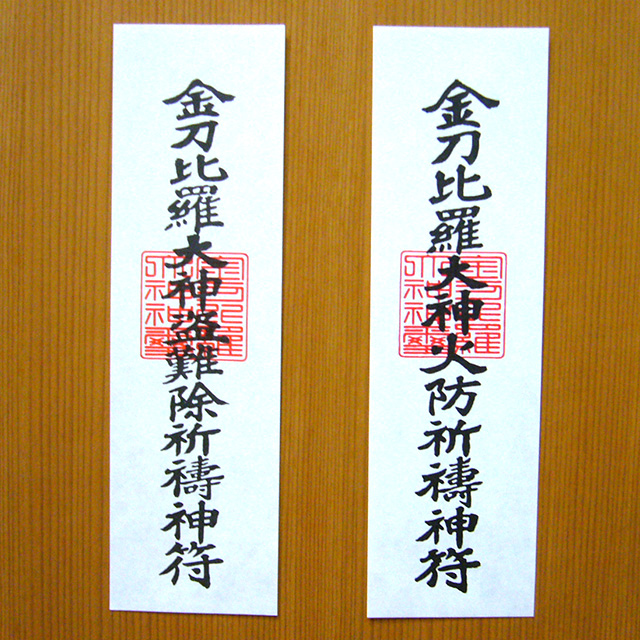 金刀比羅大神火防祈禱神符
金刀比羅大神盗難除祈禱神符